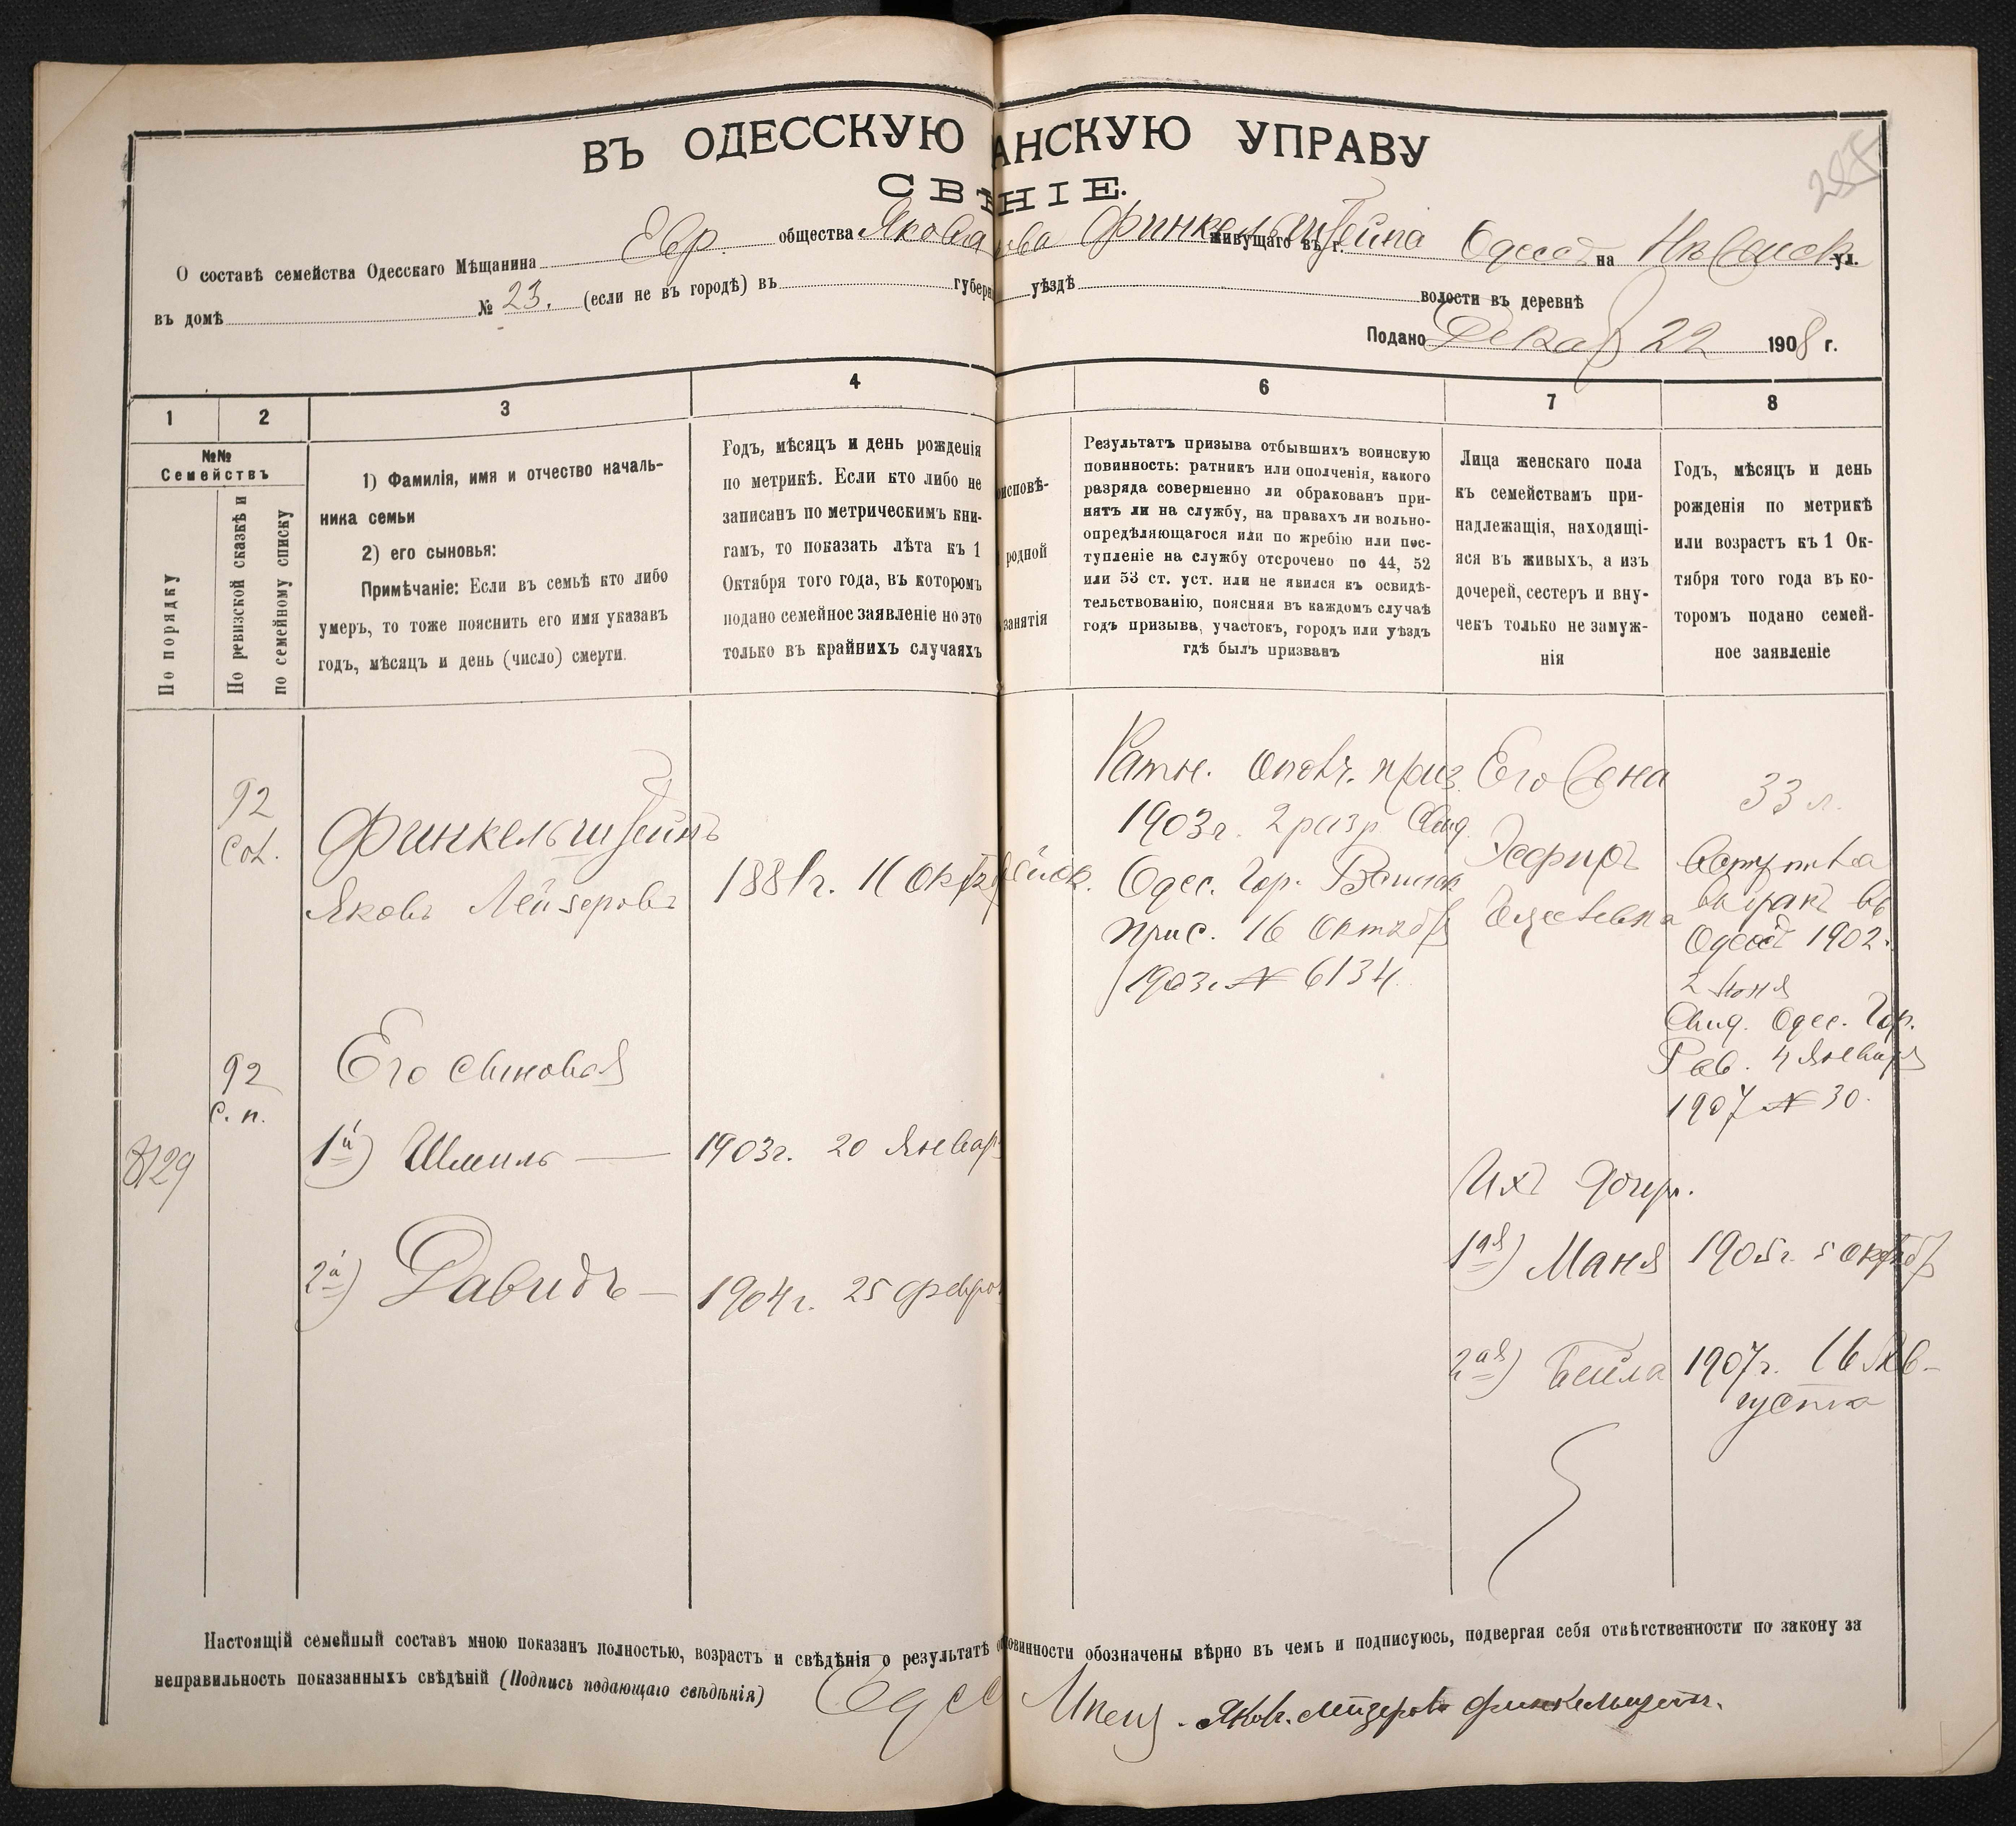 ВЪ ОДЕССКУЮ АНСКУЮ УПРАВУ
СВѢНІЕ.
О составѣ семейства Одесскаго Мѣщанина Евр. общества Якова Финкельштейна живущаго въ г. Одессѣ на ул.
въ домѣ № 23. (если не въ городѣ) въ губерн уѣздѣ волости въ деревнѣ
Подано Декаб 22 1908 г.
285
1 2 3 4 6 7 8
№№
Семействъ
По порядку
По ревизской сказкѣ и
по семейному списку
1) Фамилія, имя и отчество началь-
ника семьи
2) его сыновья:
Примѣчаніе: Если въ семьѣ кто либо
умеръ, то тоже пояснить его имя указавъ
годъ, мѣсяцъ и день (число) смерти.
Годъ, мѣсяцъ и день рожденія
по метрикѣ. Если кто либо не
записанъ по метрическимъ кни-
гамъ, то показать лѣта къ 1
Октября того года, въ которомъ
подано семейное заявленіе но это
только въ крайнихъ случаяхъ
исповѣ-
родной
занятія
Результатъ призыва отбывшихъ воинскую
повинность: ратникъ или ополченія, какого
разряда совершенно ли обракованъ при-
нятъ ли на службу, на правахъ ли вольно-
опредѣляющагося или по жребію или пос-
тупленіе на службу отсрочено по 44, 52
или 53 ст. уст. или не явился къ освидѣ-
тельствованію, поясняя въ каждомъ случаѣ
годъ призыва, участокъ, городъ или уѣздъ
гдѣ былъ призванъ
Лица женскаго пола
къ семействамъ при-
надлежащія, находящі-
яся въ живыхъ, а изъ
дочерей, сестеръ и вну-
чекъ только не замуж-
нія
Годъ, мѣсяцъ и день
рожденія по метрикѣ
или возрастъ къ 1 Ок-
тября того года въ ко-
торомъ подано семей-
ное заявленіе
8129
92
92
с. п.
Финкельштейнъ
Яковъ Лейзеровъ
Его сыновья
1й) Шмиль
2й) Давидъ
1903г. 20 Январ
1904г. 25 Февра
Ратн. Ополч. приз.
1903г. 2 разр. Свид.
Одес. Гор. Воинск.
прис. 16 Октябр
1903г. № 6134.
Его жена
Эсфирь
33 л.
Вступила
въ бракъ въ
Одессѣ 1902.
2 Июня
Свид. Одес. Гор.
Рав. 4 Января
1907 № 30.
Ихъ дочер.
1ая) Маня 1905г. 5 Октяб
2ая) Бейла 1907г. 16 Ав-
густа
Настоящій семейный составъ мною показанъ полностью, возрастъ и свѣдѣнія о результатѣ овинности обозначены вѣрно въ чемъ и подписуюсь, подвергая себя отвѣтственности по закону за
неправильность показанныхъ свѣдѣній (Подпись подающаго свѣдѣнія) Одес Мѣщ. Яковъ Лейзеровъ Финкельштейнъ.